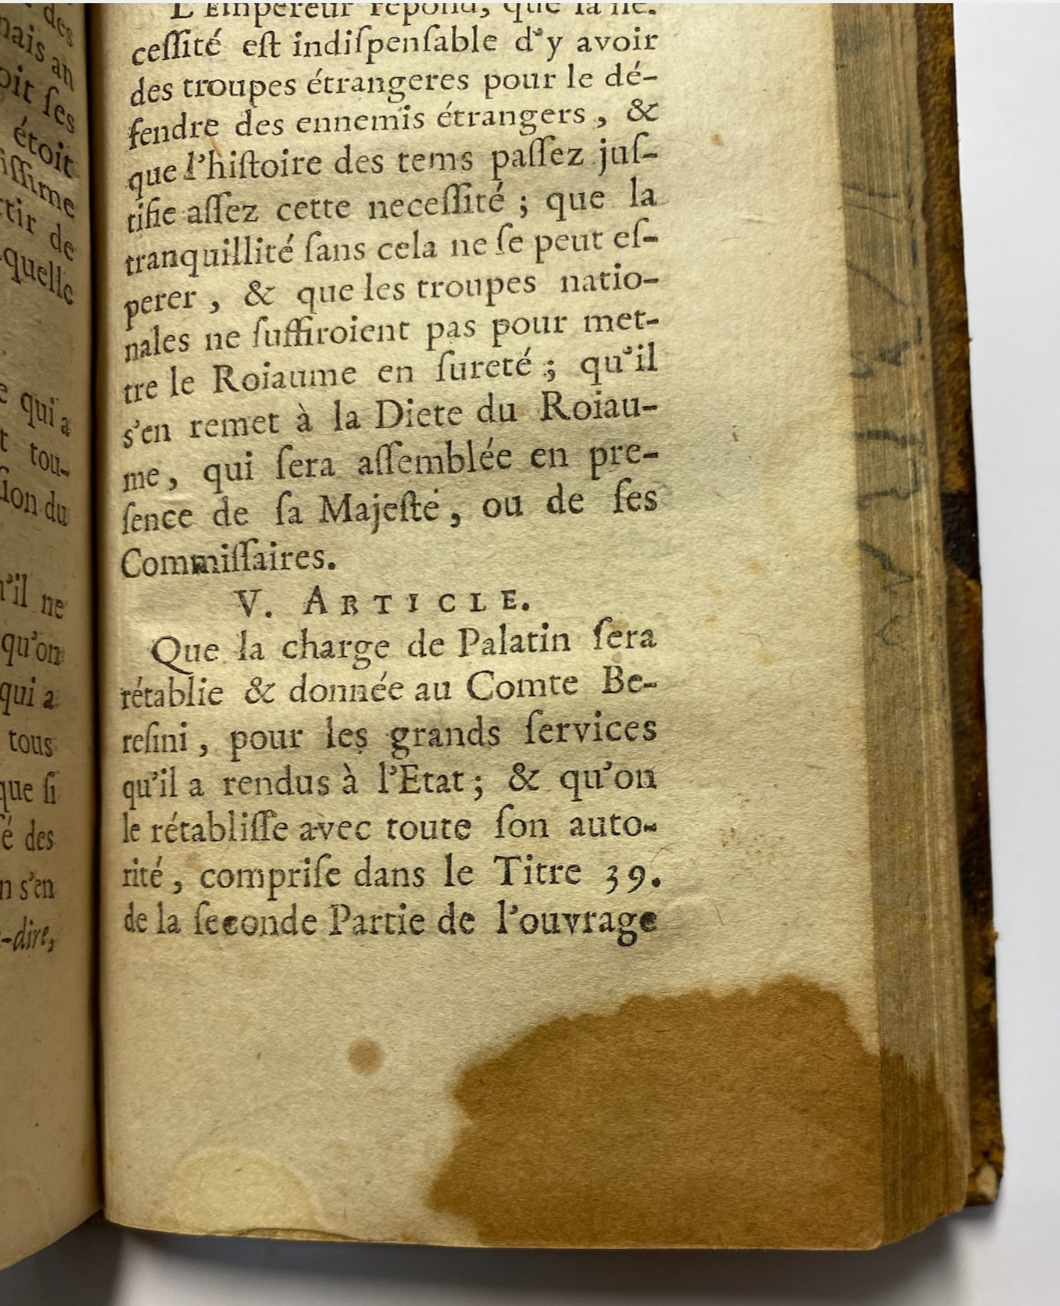 des
mais an
oit ſes
étoit
iſſime
tir de
-quelle
e qui a
t tou-
ion du
'il ne
qu'on
qui a
tous
que ſi
é des
n s'en
-dire,
L'Empereur répond, que la né-
ceſſité eſt indiſpenſable d'y avoir
des troupes étrangeres pour le dé-
fendre des ennemis étrangers, &
que l'hiſtoire des tems paſſez juſ-
tifie aſſez cette neceſſité ; que la
tranquillité ſans cela ne ſe peut eſ-
perer, & que les troupes natio-
nales ne ſuffiroient pas pour met-
tre le Roiaume en ſureté ; qu'il
s'en remet à la Diete du Roiau-
me, qui ſera aſſemblée en pre-
ſence de ſa Majeſté, ou de ſes
Commiſſaires.
V. ARTICLE.
Que la charge de Palatin ſera
rétablie & donnée au Comte Be-
reſini, pour les grands ſervices
qu'il a rendus à l'Etat ; & qu'on
le rétabliſſe avec toute ſon auto-
rité, compriſe dans le Titre 39.
de la ſeconde Partie de l'ouvrage